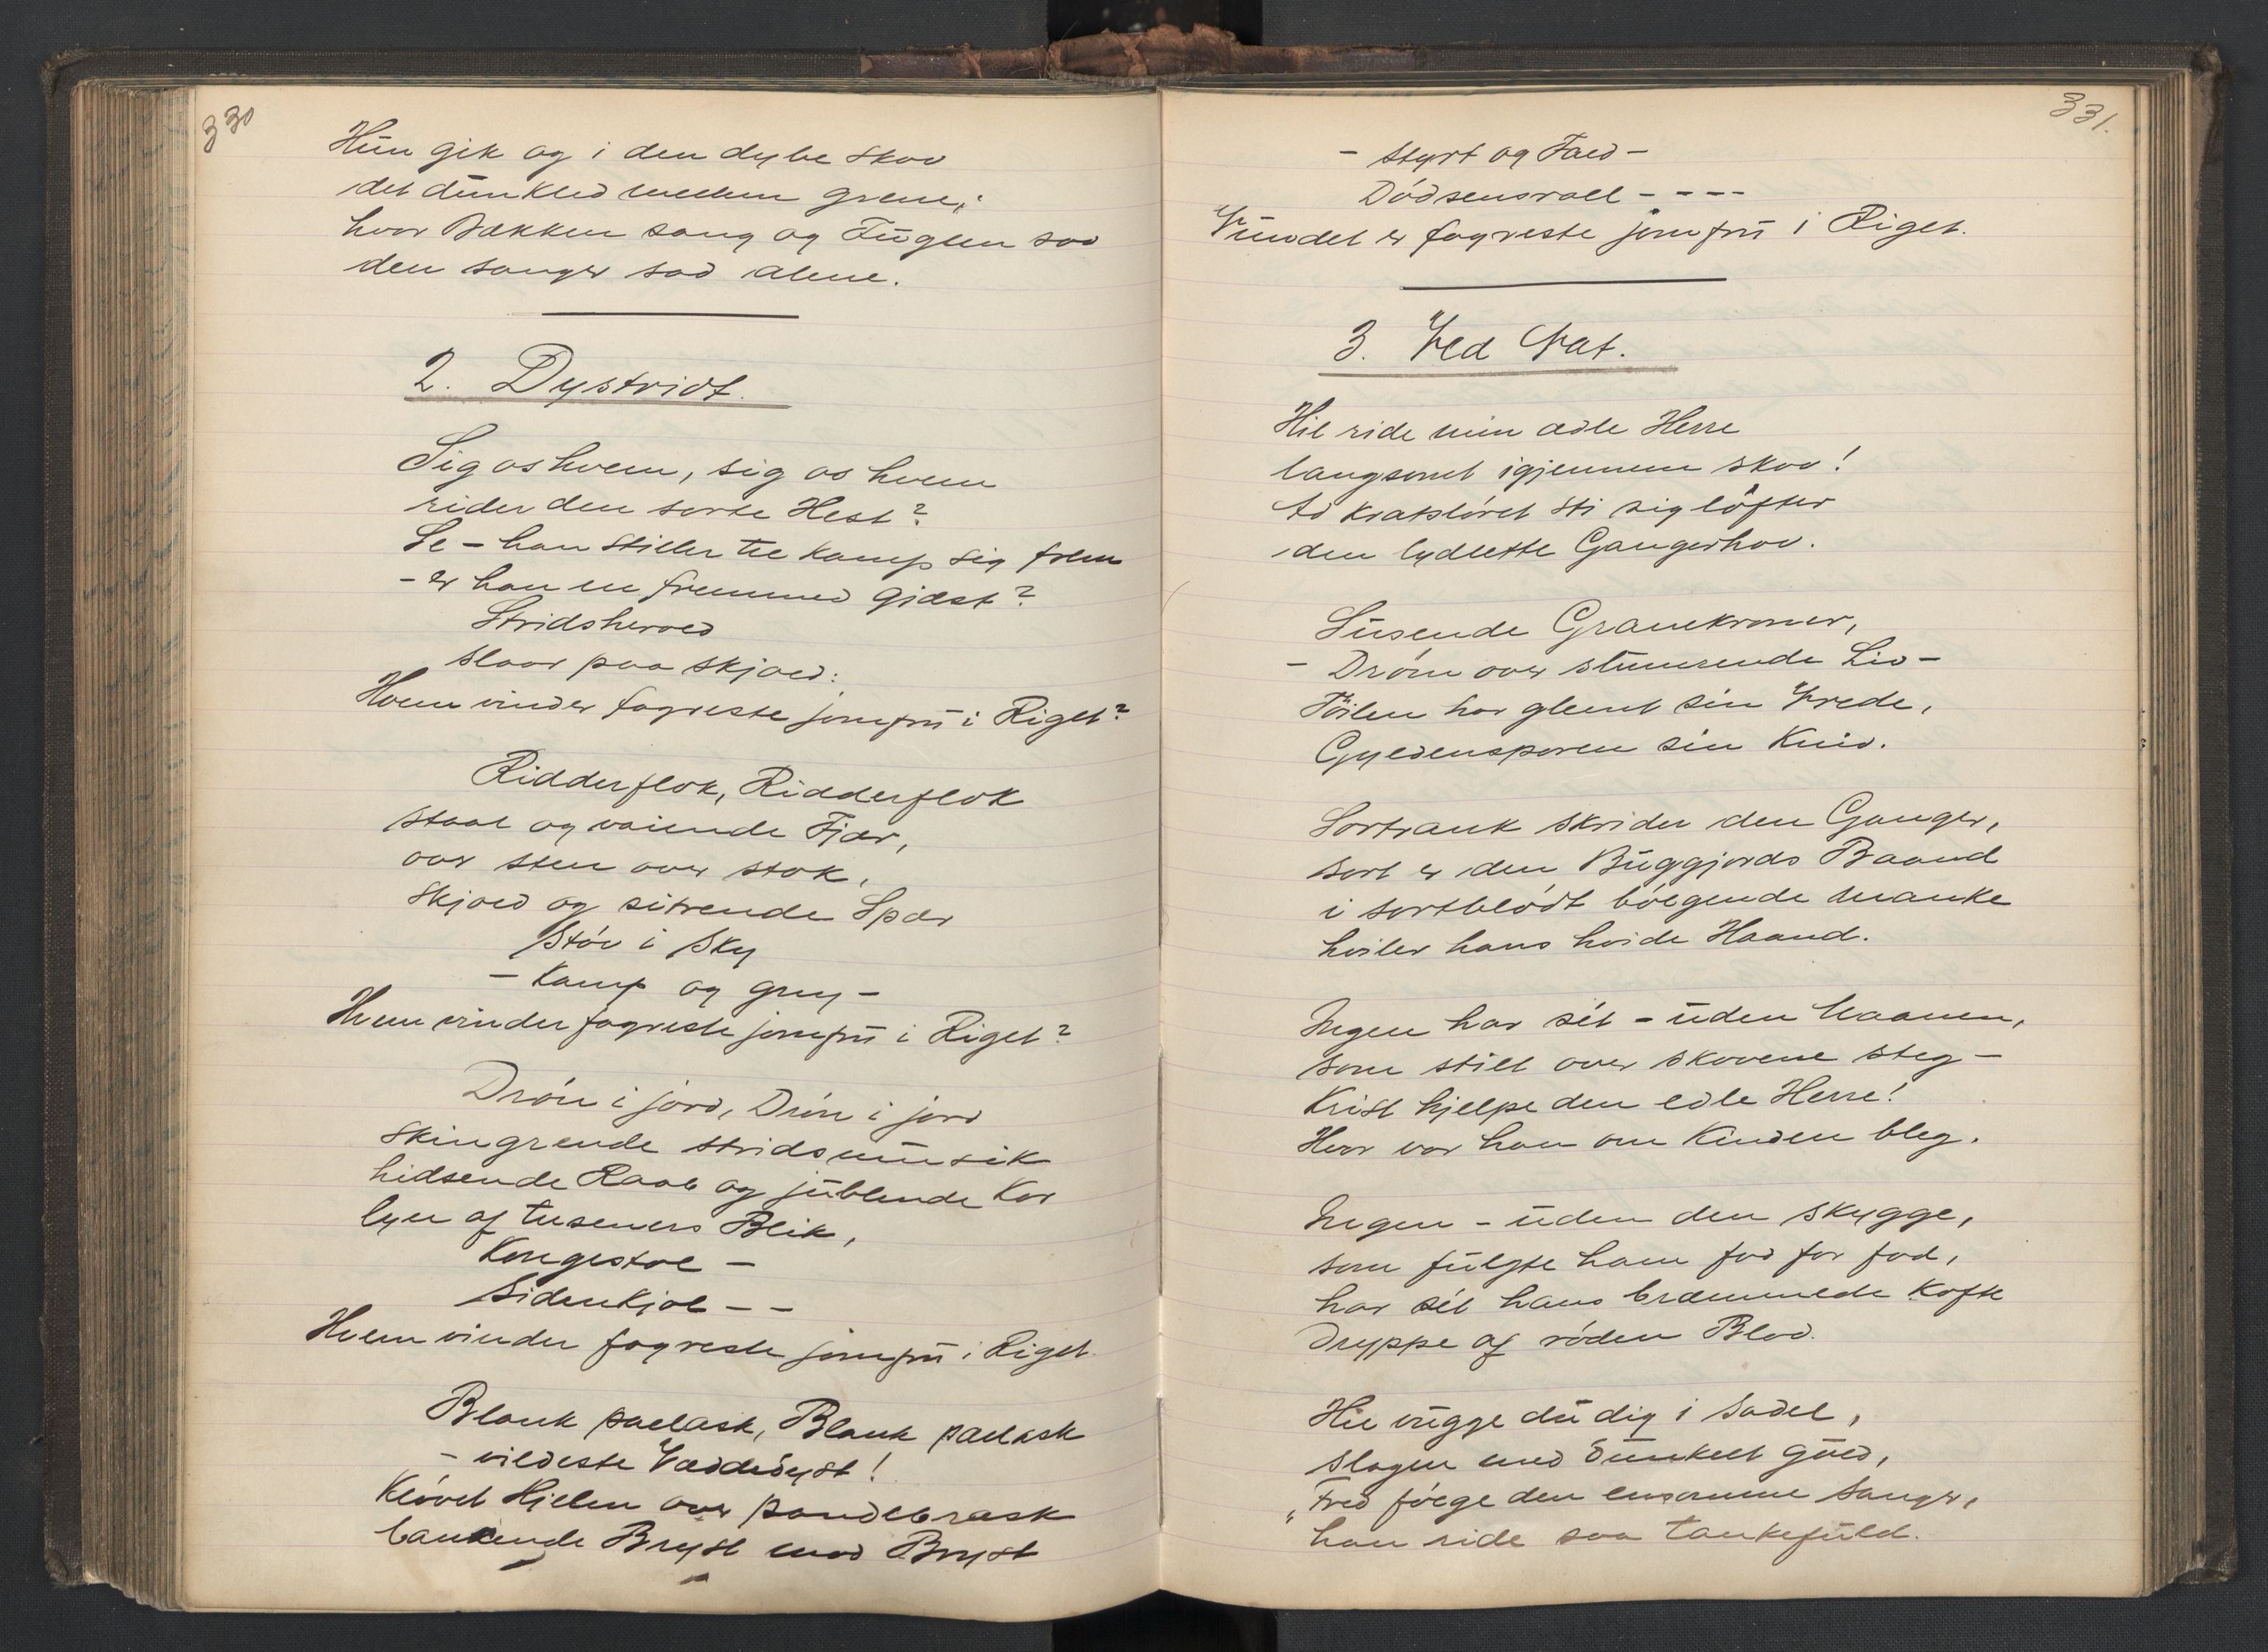 330
Hun gik og i den dybe Skov
det dunkled mellem grene,
hvor Bækken sang og Fuglen sov
den sanger sad alene.
2. Dystridt.
Sig os hvem, sig os hvem
rider den sorte Hest?
Se – han stiller til kamp sig frem
– er han en fremmed Gjæst?
Stridsherold
slaar paa skjold:
Hvem vinder fagreste jomfru i Riget?
Ridderflok, Ridderflok
staal og vaiende Fjær,
over sten over stok,
skjold og sitrende Spær
Støv i Sky
– Kamp og gny –
Hvem vinder fagreste jomfru i Riget?
Drøn i jord, Drøn i jord
skingrende stridsmusik
hidsende Raab og jublende Kor
lyn af tuseners Blik,
Kongestol –
Sidenkjol – –
Hvem vinder fagreste jomfru i Riget.
Blank pallask, Blank pallask
– vildeste Væddedyst!
Kløvet Hjelm over pandebrask
bankende Bryst mod Bryst
331.
– styrt og Fald –
Dødsensrall – – – –
Vundet er fagreste jomfru i Riget.
3. Ved Nat.
Hil ride min ædle Herre
langsomt igjennem skov!
Ad kratsløret sti sig løfter
den lydlette Gangerhov.
Susende Granekroner,
– Drøm over slumrende Liv –
Føilen har glemt sin Vrede,
Gyldensporen sin Kniv.
Sortrank skrider den Ganger,
sort er den Buggjords Baand
i sortblødt bølgende manke
hviler hans hvide Haand.
Ingen har sét – uden Maanen,
som stilt over skovene steg –
Krist hjelpe den edle Herre!
Hvor var han om Kinden bleg.
Ingen – uden den skygge,
som fulgte ham fod for fod,
har sét hans bræmmede Kofte
Dryppe af røden Blod.
Hil vugge du dig i sadel,
slagen med dunkelt guld,
"Fred følge den ensomme sanger,
han ride saa tankefuld.